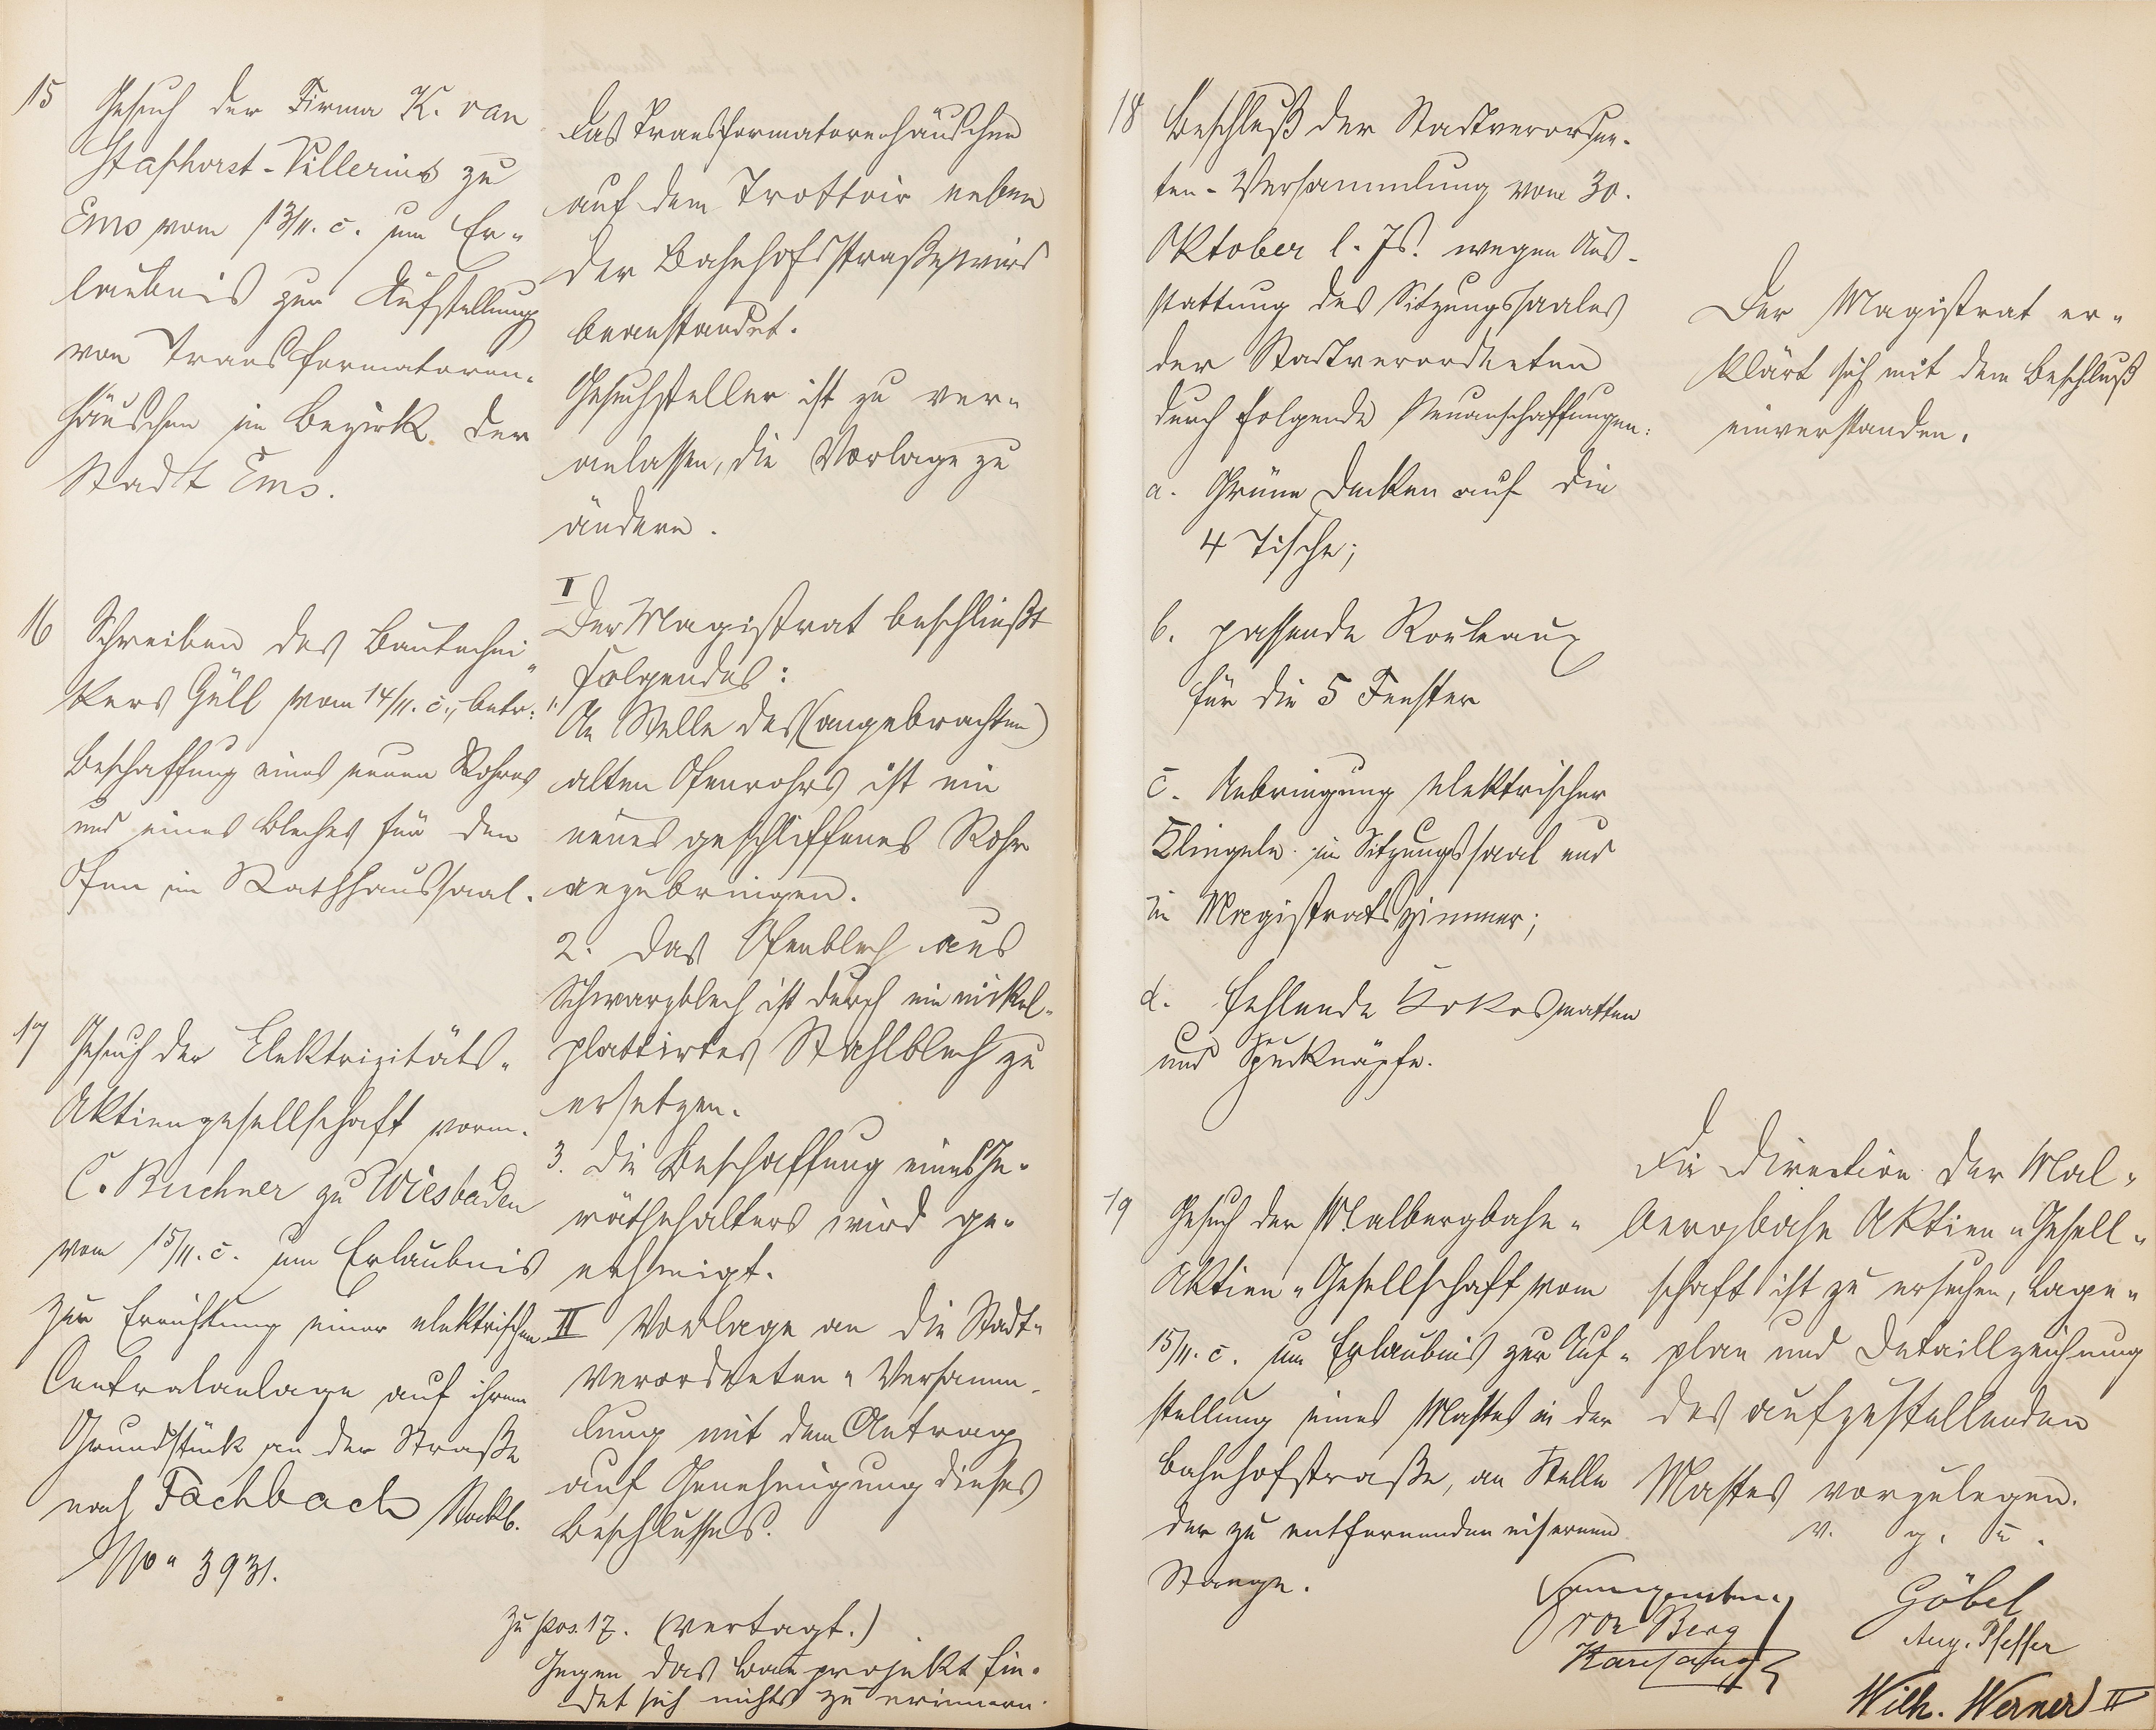 15 Gesuch der Firma K. van
Staphorst-Villerius zu
Ems vom 13/11. c. um Er-
laubnis zur Aufstellung
von Transformatoren-
häuschen im Bezirk der
Stadt Ems.
das Transformatorenhäuschen
auf dem Trottoir neben
der Bahnhofsstraße wird
beanstandet.
Gesuchsteller ist zu ver-
anlassen, die Vorlage zu
ändern.
16 Schreiben des Bautechni-
kers Güll vom 14/11. c., betr.
Beschaffung eines neuen Rohres
und eines Bleches für den
Ofen im Rathhaussaal.
I
Der Magistrat beschließt
Folgendes:
1.) An Stelle des (angebrachten)
alten Ofenrohrs ist ein
neues geschliffenes Rohr
anzubringen.
2. das Ofenblech aus
Schwarzblech ist durch ein nickel-
plattirtes Stahlblech zu
ersetzen.
3. die Beschaffung eines Ge-
räthehalters wird ge-
nehmigt.
II Vorlage an die Stadt-
verordneten-Versamm-
lung mit dem Antrag
auf Genehmigung dieses
Beschlusses.
17 Gesuch der Elektrizitäts-
Aktiengesellschaft vorm.
C. Buchner zu Wiesbaden
vom 15/11. c. um Erlaubnis
zur Errichtung einer elektrischen
Centralanlage auf ihrem
Grundstück an der Straße
nach Fachbach Stockb.
No 3931.
zu pos. 17. (vertagt.)
Gegen das Bauprojekt fin-
det sich nichts zu erinnern.
18 Beschluß der Stadtverordne-
ten-Versammlung vom 30.
Oktober l. Js. wegen Aus-
stattung des Sitzungssaales
der Stadtverordneten
durch folgende Neuanschaffungen:
a. Grüne Decken auf die
4 Tische;
b. passende Rouleaux
für die 5 Fenster
c. Anbringung elektrischer
Klingeln im Sitzungssaal und
im Magistratszimmer;
d. fehlende Kokosmatten
und Spucknäpfe.
Der Magistrat er-
klärt sich mit dem Beschluß
einverstanden.
19 Gesuch der Malbergbahn-
Aktien-Gesellschaft vom
15/11. c. um Erlaubnis zur Auf-
stellung eines Mastes in der
Bahnhofstraße, an Stelle
der zu entfernenden eisernen
Stange.
Die Direction der Mal-
bergbahn Aktien-Gesell-
schaft ist zu ersuchen, Lage-
plan und Detaillzeichnung
des aufzustellenden
Mastes vorzulegen.
v. g. u.
Göbel
von Berg
Aug. Pfeffer
Wilh. Werner II